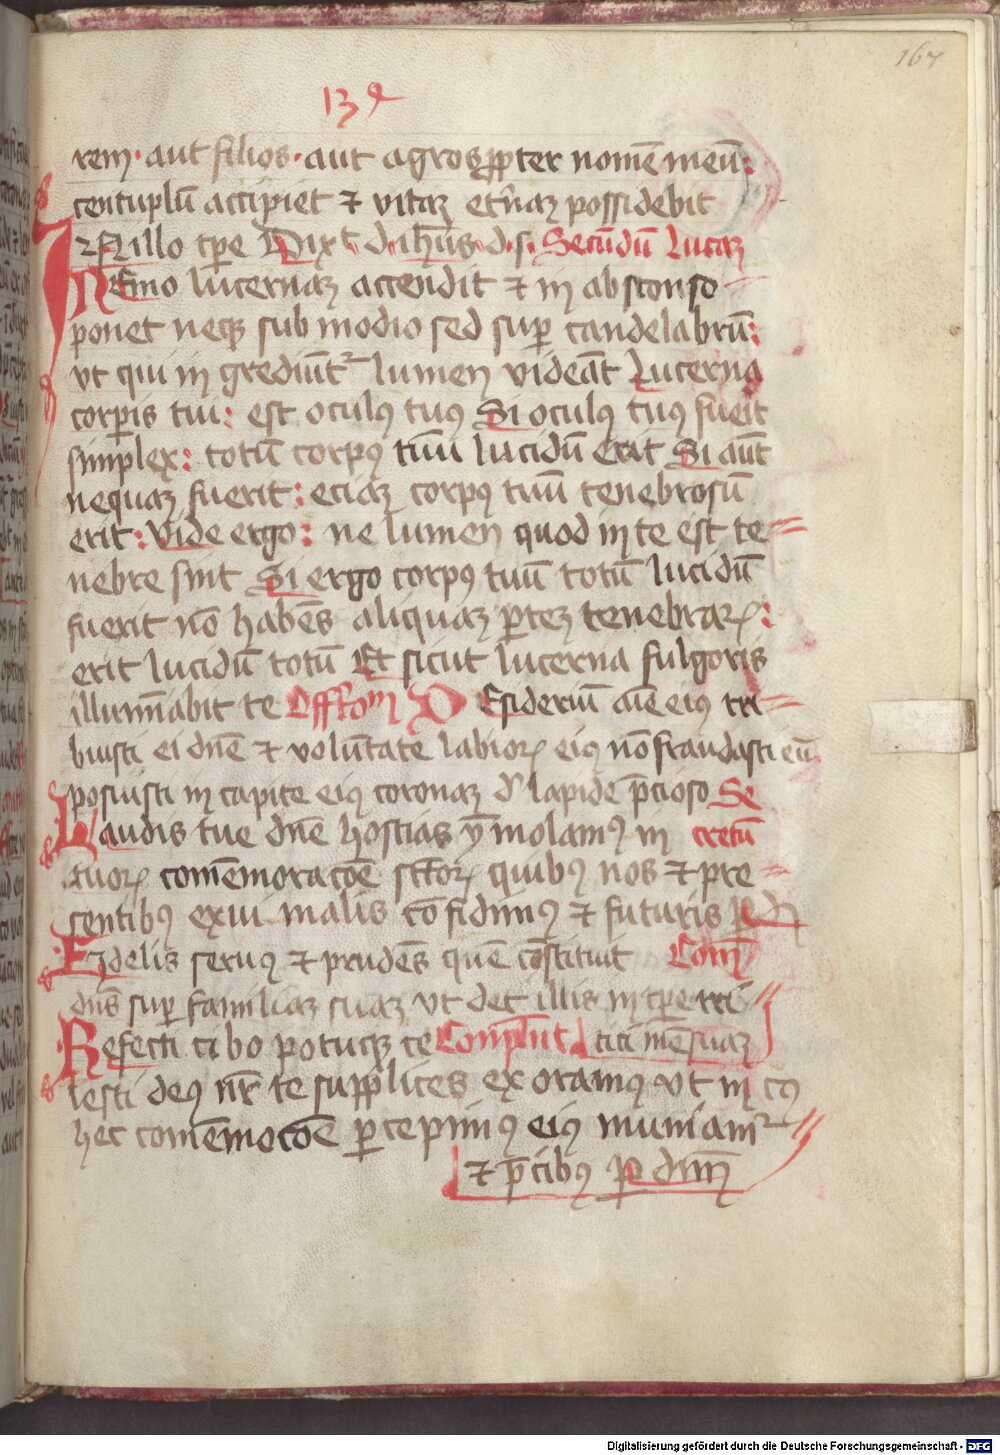 167
139
rem · aut filios · aut agros ꝓpter nomē meū :
centuplū accipiet ⁊ vitaꝫ et̄naꝫ possidebit
N illo tꝑe Dixt dn̄s ih̓us d. s. Secūdū Lucaꝫ
NEmo lucernaꝫ accendit ⁊ in absconso
ponet neqꝫ sub modio sed suꝑ candelabrū :
vt qui in grediūt᷑ lumen videāt Lucerna
corꝑis tui : est oculꝰ tuꝰ Si oculꝰ tuꝰ fuerit
simplex : totū corpꝰ tuū lucidū erit Si aūt
nequaꝫ fuerit : eciaꝫ corpꝰ tuū tenebrosū
erit : Vide ergo : ne lumen quod in te est te=
nebre sint Si ergo corpꝰ tuū totū lucidū
fuerit nō habēs aliquaꝫ ꝑteꝫ tenebraꝝ :
erit lucidū totū Et sicut lucerna fulgoris
illumīabit te Offtoꝛm DEsideriū aīe eiꝰ tri=
buisti ei dn̄e ⁊ volūtate labioꝝ eiꝰ nō fraudasti eū
posuisti in capite eiꝰ coronaꝫ d̓ lapide p̄cioso Se
Laudis tue dn̄e hostias ym̄molamꝰ in cretū
tuoꝝ comēmoracōe sctoꝝ quibꝰ nos ⁊ pre=
sentibꝰ exui malis cōfidimꝰ ⁊ futuris ꝑ dn̄
Fidelis seruꝰ ⁊ prudēs quē cōstituit Com̄
dn̄s suꝑ familiaꝫ suaꝫ vt det illis in tꝑe tri
Refecti cibo potuqꝫ ce Complent tici mēsuraꝫ
lesti deꝰ nr̄ te supplices exoramꝰ vt in cꝰ
hec comēmocōe ꝑcepimꝰ eiꝰ muniam᷑
⁊ p̄cibꝰ ꝑ dnm̄
Digitalisierung gefördert durch die Deutsche Forschungsgemeinschaft - DFG